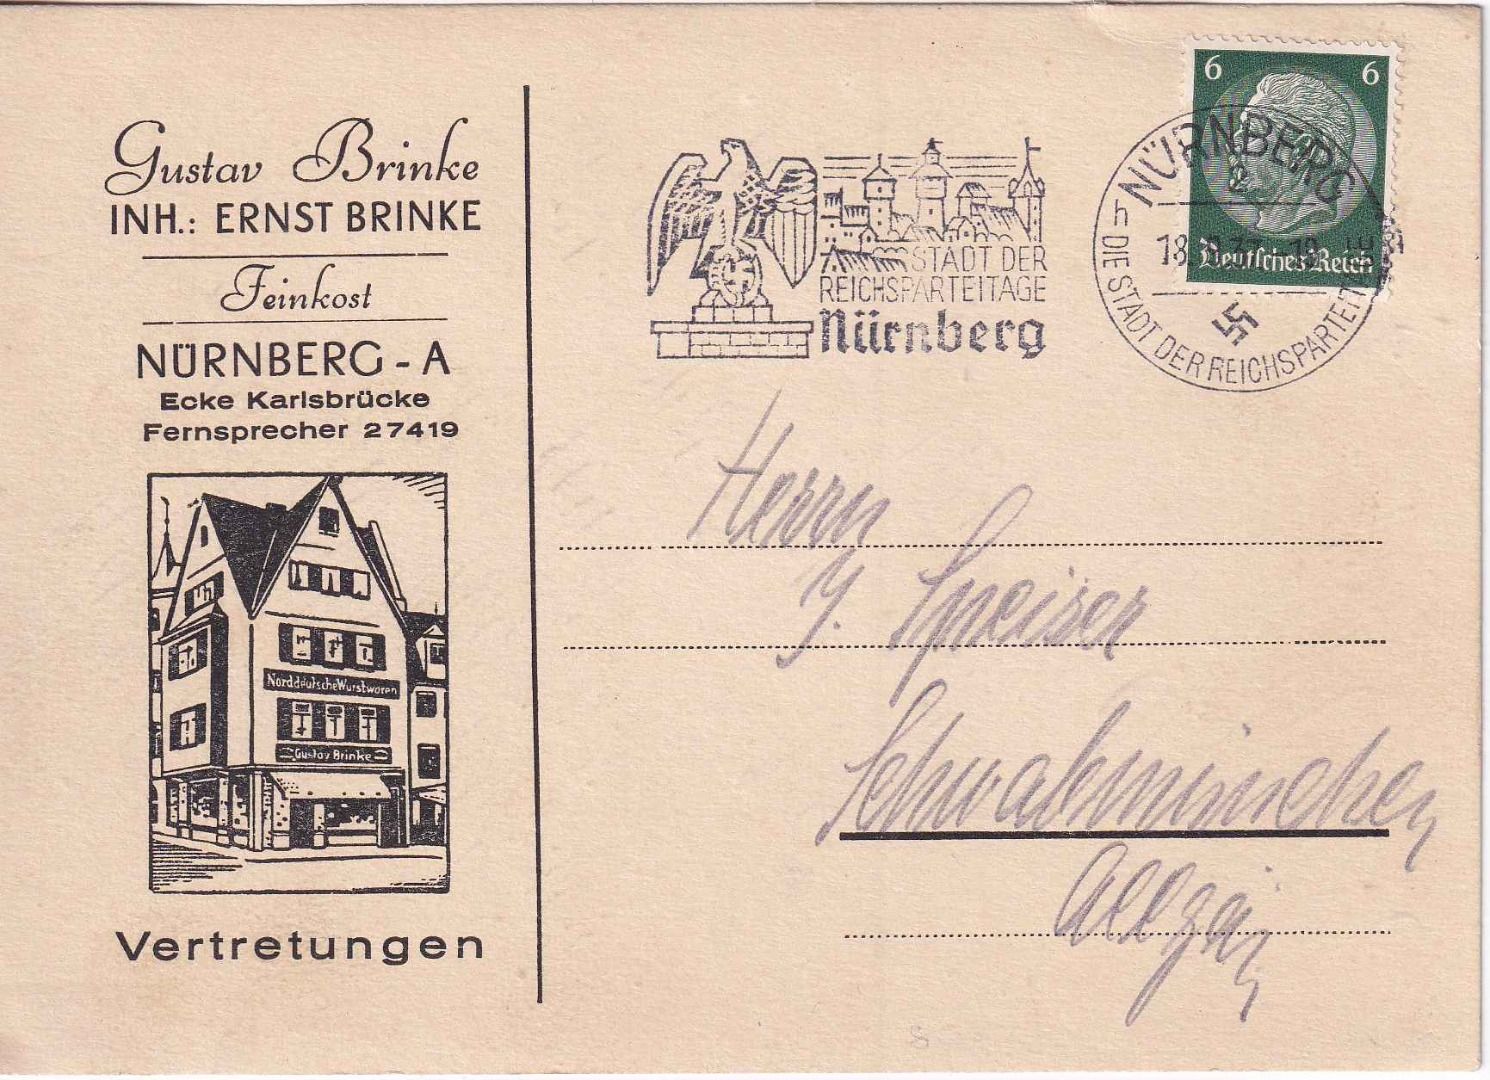 Gustav Brinke
INH.: ERNST BRINKE
Feinkost
NÜRNBERG - A
Ecke Karlsbrücke
Fernsprecher 27419
Norddeutsche Wurstwaren
Gustav Brinke
Vertretungen
STADT DER
REICHSPARTEITAGE
Nürnberg
6 6
Deutsches Reich
NÜRNBERG
2
18. 37 - 19
h
DIE STADT DER REICHSPARTEITAGE
Herrn
J. Speiser
Schwabmünchen
Allgäu